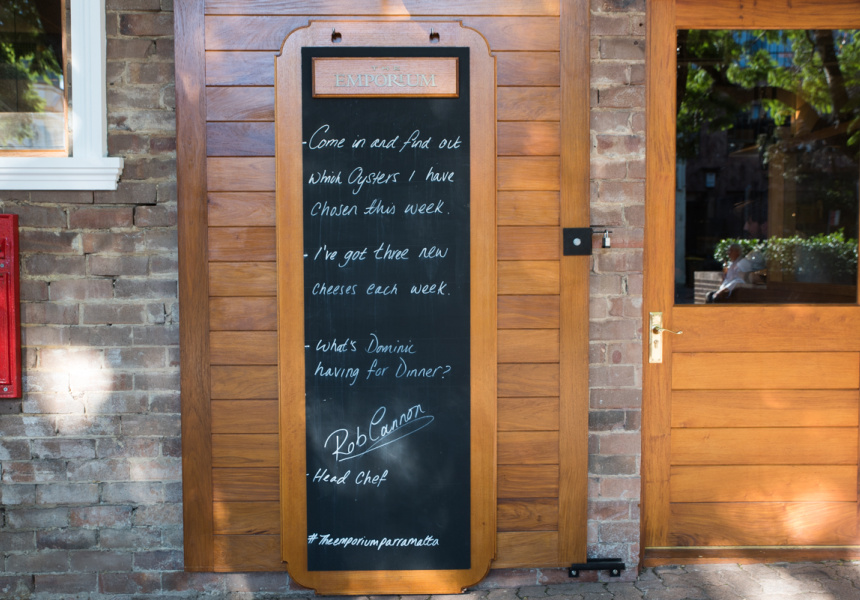 THE
EMPORIUM
- Come in and find out
which Oysters I have
chosen this week.
- I've got three new
cheeses each week.
- What's Dominic
having for Dinner?
Rob Cannon
- Head Chef
#Theemporiumparramatta